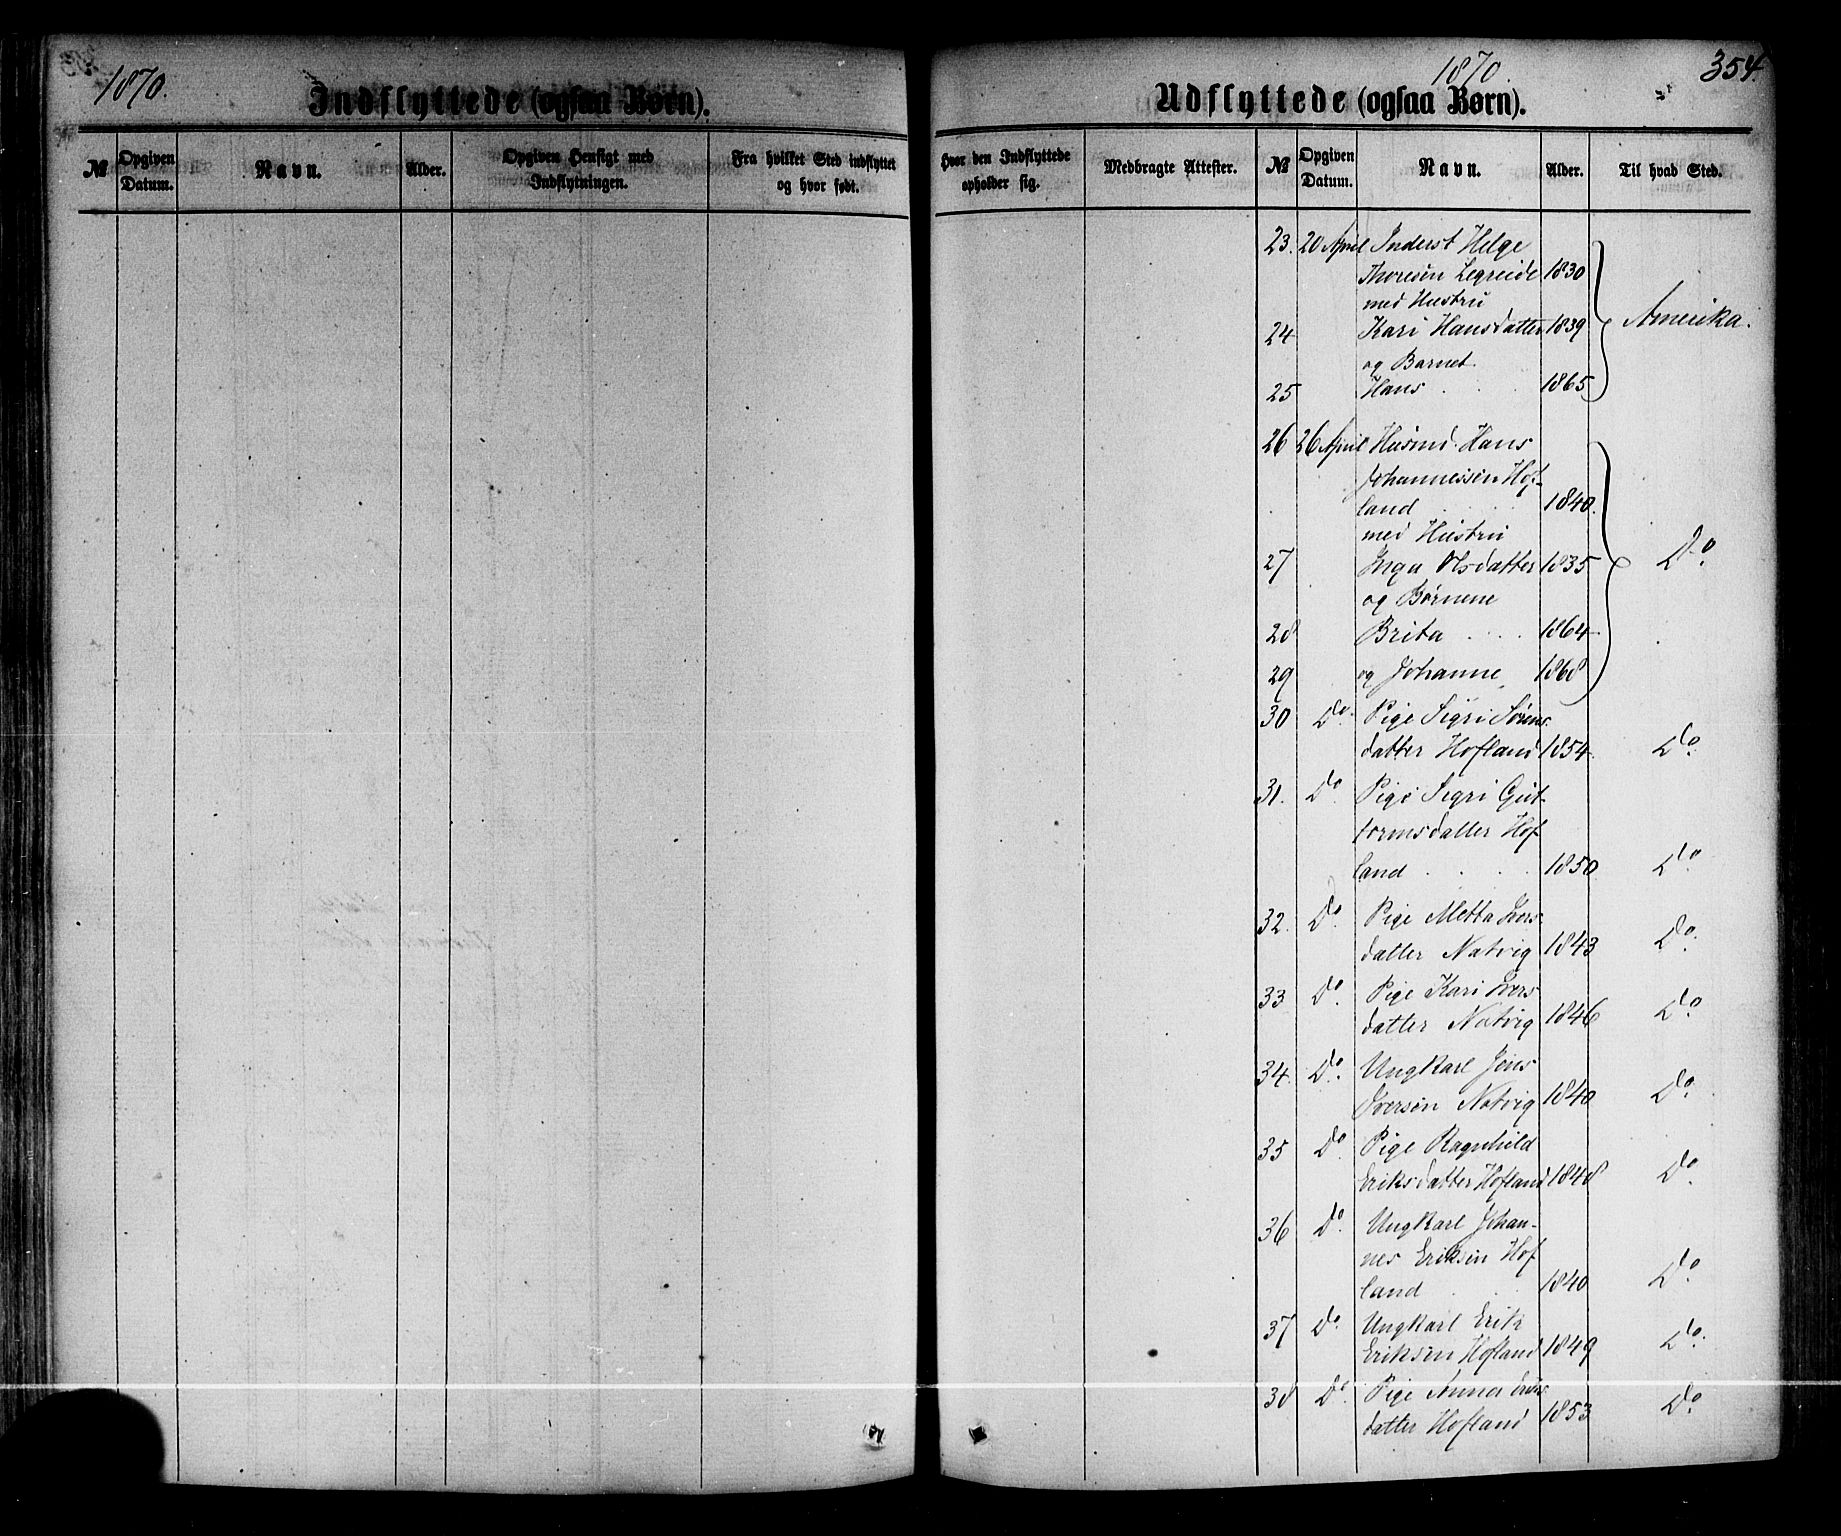 1870.
Indflyttede (ogsaa Børn).
№
Opgiven Datum.
Navn.
Alder.
Opgiven Hensigt med Indflytningen.
Fra hvilket Sted indflyttet og hvor født.
1870.
354
Udflyttede (ogsaa Børn).
Hvor den Indflyttede opholder sig.
Medbragte Attester.
№
Opgiven Datum.
Navn.
Alder.
Til hvad Sted.
23. 20 April Inderst Helge
Thoresen Legreide 1830
med Hustru
24 Kari Hansdatter 1839 Amerika.
og Barnet
25 Hans 1865
26 26 April Husmd. Hans
Johannessen Hof-
land 1840.
med Hustru
27 Inga Olsdatter 1835 Do.
og Børnene
28 Brita 1864
29 og Johanne 1868
30 Do. Pige Sigri Sørens
datter Hofland 1854 Do.
31. Do. Pige Sigri Gut-
tormsdatter Hof
land 1850 Do.
32. Do. Pige Metta Ivers
datter Natvig 1843 Do.
33 Do. Pige Kari Ivers
datter Natvig 1846 Do.
34. Do. Ungkarl Jens
Iversen Natvig 1840 Do.
35 Do. Pige Ragnhild
Eriksdatter Hofland 1848 Do.
36 Do. Ungkarl Johan-
nes Eriksen Hof
land 1840 Do.
37 Do. Ungkarl Erik
Eriksen Hofland 1849 Do.
38 Do. Pige Anna Eriks
datter Hofland 1853 Do.